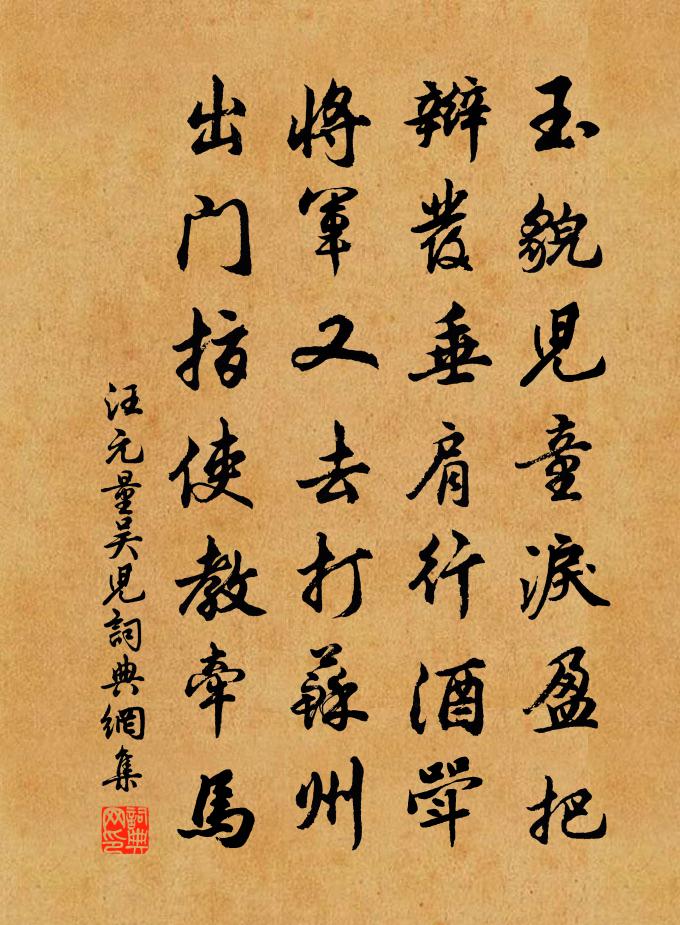 玉貌児童淚盈把
辮發垂肩行酒斝
將軍又去打蘇州
出門指使教牽馬
汪元量吳児詞典網集
詞典网印